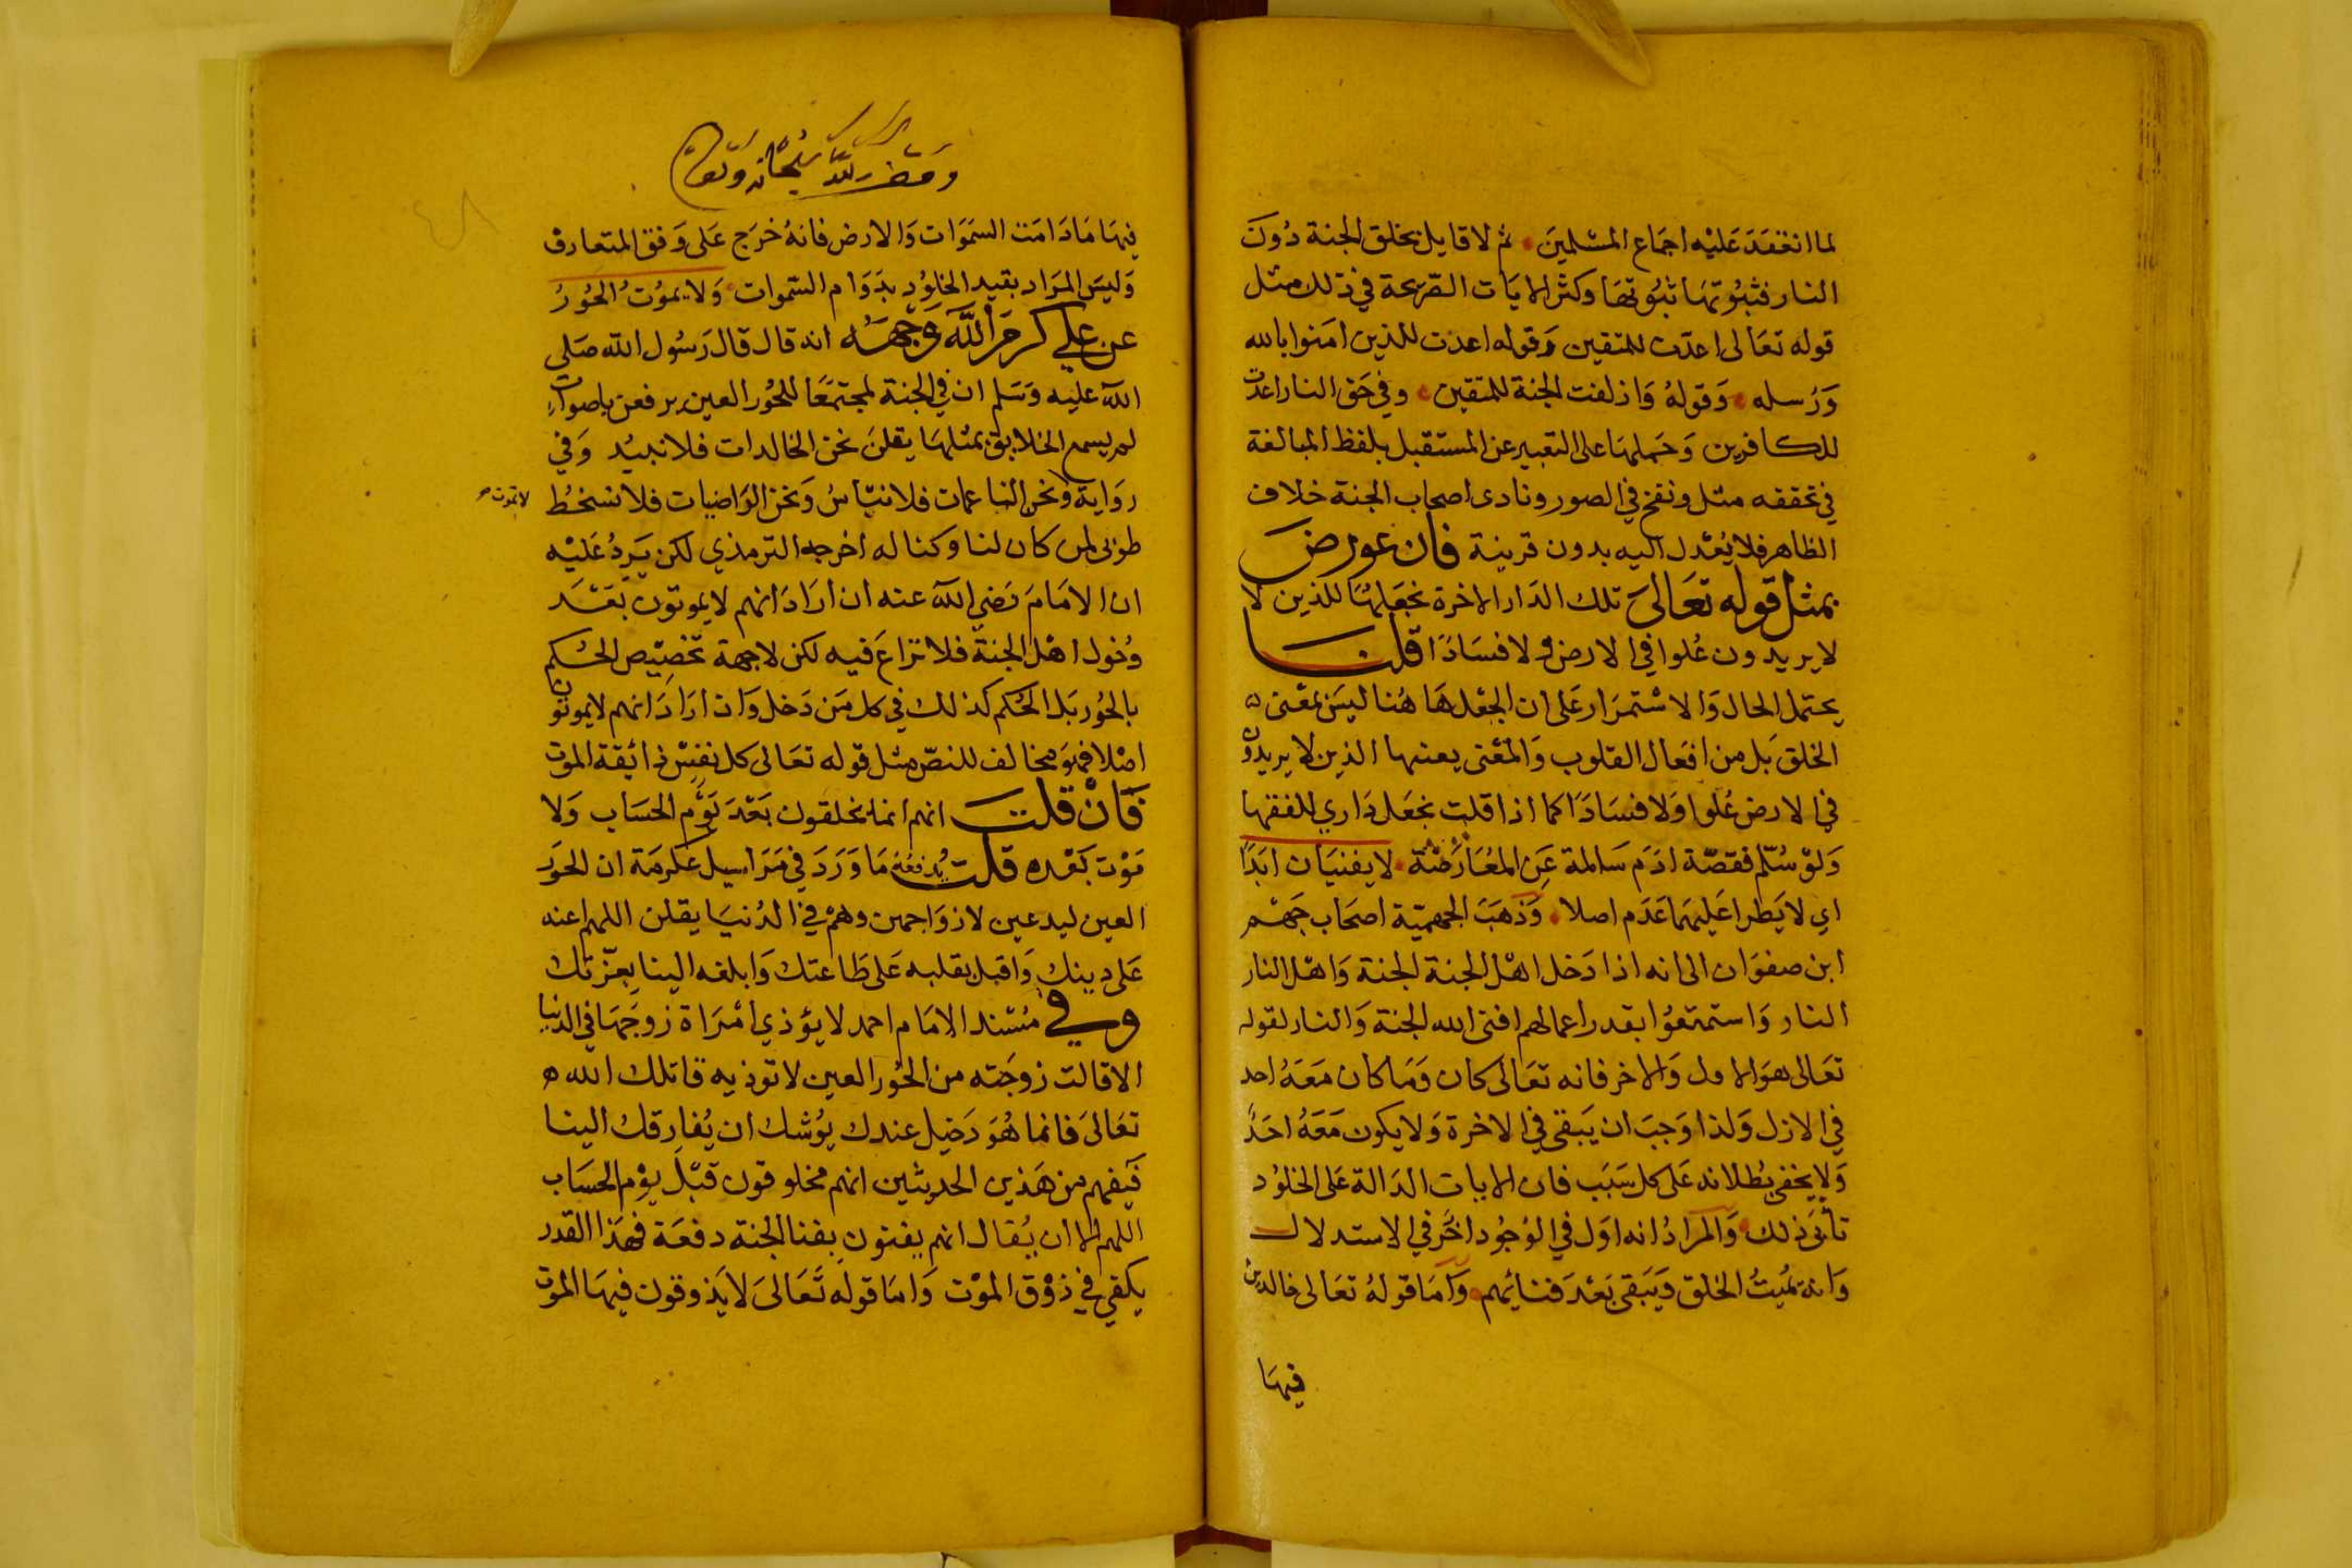 لما انعقد عليه اجماع المسلمين ثم لا قايل بخلق الجنة دون
النار فثبوتها ثبوتها وكثر الايات الصريحة في ذلك مثل
قوله تعالى اعدت للمتقين وقوله اعدت للذين امنوا بالله
ورسله وقوله وازلفت الجنة للمتقين وفي حق النار اعدت
للكافرين وحملها على التعبير عن المستقبل بلفظ المبالغة
في تحققه مثل ونفخ في الصور ونادى اصحاب الجنة خلاف
الظاهر فلا يعدل اليه بدون قرينة فان عورض
بمثل قوله تعالى تلك الدار الاخرة نجعلها للذين لا
لا يريدون علوا في الارض ولا فسادا قلنا
يحتمل الحال والاستمرار على ان الجعل هاهنا ليس بمعنى
الخلق بل من افعال القلوب والمعنى يعنيها الذين لا يريدون
في الارض علوا ولا فسادا كما اذا قلت نجعل داري للفقها
ولو سلم فقصة ادم سالمة عن المعارضة لا يفنيان ابدا
اي لا يطرا عليهما عدم اصلا وذهب الجهمية اصحاب جهم
ابن صفوان الى انه اذا دخل اهل الجنة الجنة واهل النار
النار واستمتعوا بقدر اعمالهم افنى الله الجنة والنار لقوله
تعالى هو الاول والاخر فانه تعالى كان وما كان معه احد
في الازل ولذا وجب ان يبقى في الاخرة ولا يكون معه احد
ولا يخفى بطلانه على كل سبب فان الايات الدالة على الخلود
تأبى ذلك والمراد انه اول في الوجود اخر في الاستدلال
وانه يميت الخلق ويبقى بعد فنائهم واما قوله تعالى خالدين
فيها
سبحانه وتعالى
فيها ما دامت السموات والارض فانه خرج على وفق المتعارف
وليس المراد بقيد الخلود بدوام السموات ولا يموت الحور
عن علي كرم الله وجهه انه قال قال رسول الله صلى
الله عليه وسلم ان في الجنة لمجتمعا للحور العين يرفعن باصوات
لم يسمع الخلايق بمثلها يقلن نحن الخالدات فلا نبيد وفي
رواية ونحن الناعمات فلا نبأس ونحن الراضيات فلا نسخط
لا نموت
طوبى لمن كان لنا وكنا له اخرجه الترمذي لكن يرد عليه
ان الامام رضي الله عنه ان اراد انهم لا يموتون بعد
دخول اهل الجنة فلا نزاع فيه لكن لا جهة تخصيص الحكم
بالحور بل الحكم كذلك في كل من دخل وان اراد انهم لا يموتون
اصلا فهو مخالف للنص مثل قوله تعالى كل نفس ذائقة الموت
فان قلت انهم انما يخلقون بعد يوم الحساب ولا
موت بعده قلت يدفعه ما ورد في مراسيل عكرمة ان الحور
العين ليدعين لازواجهن وهم في الدنيا يقلن اللهم اعنه
على دينك واقبل بقلبه على طاعتك وابلغه الينا بعزتك
وفي مسند الامام احمد لا يؤذي امراة زوجها في الدنيا
الا قالت زوجته من الحور العين لا توذيه قاتلك الله
تعالى فانما هو دخيل عندك يوشك ان يفارقك الينا
فيفهم من هذين الحديثين انهم مخلوقون قبل يوم الحساب
اللهم الا ان يقال انهم يفنون بفنا الجنة دفعة فهذا القدر
يكفي في ذوق الموت واما قوله تعالى لا يذوقون فيها الموت